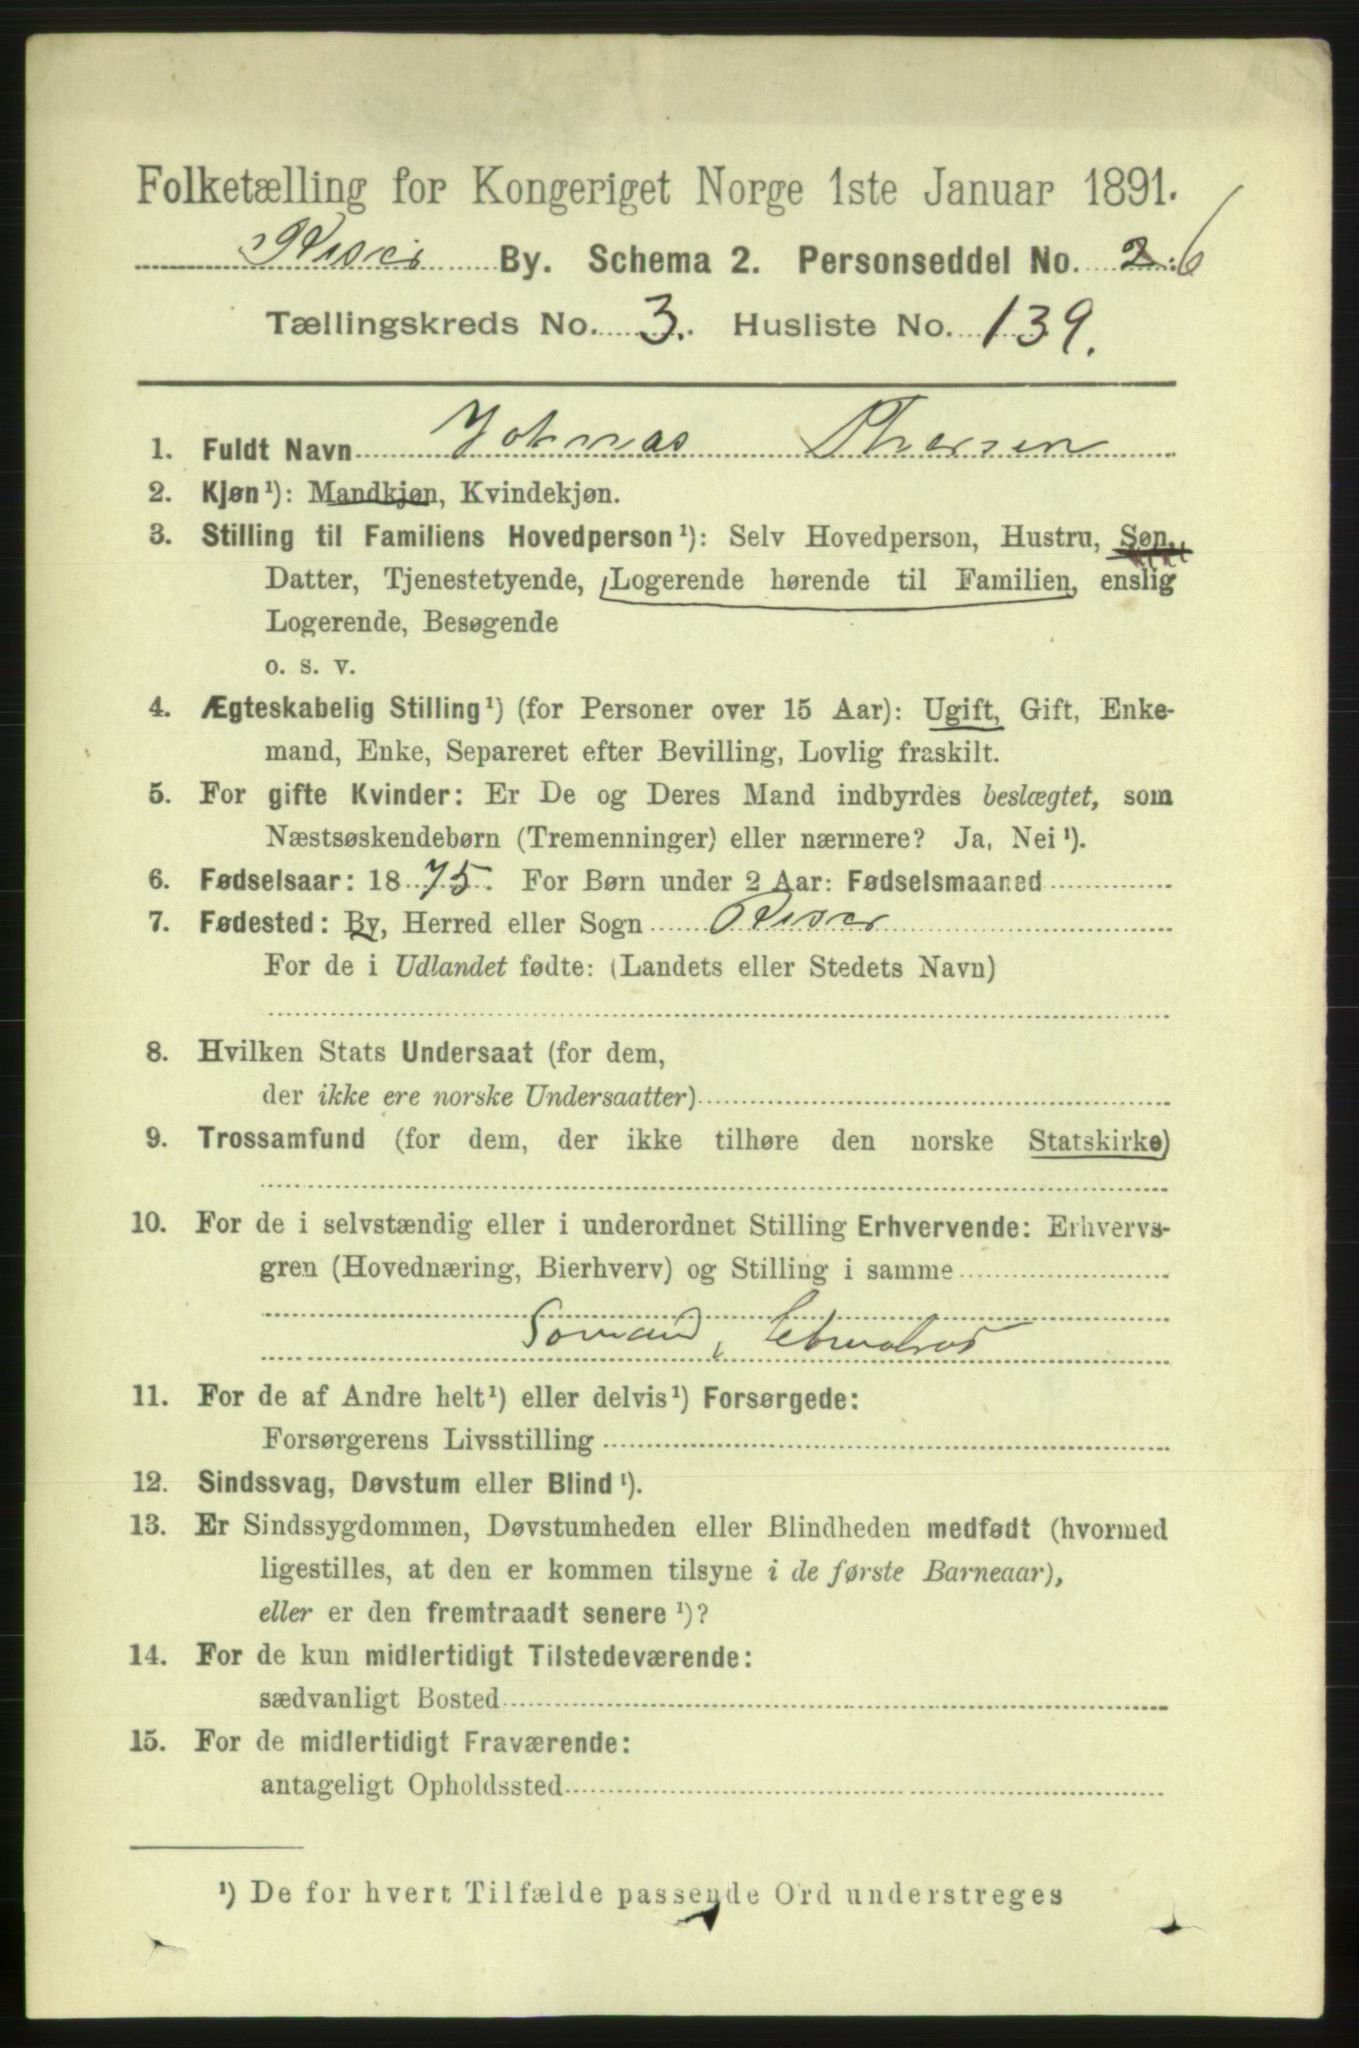 Folketælling for Kongeriget Norge 1ste Januar 1891.
Risør By. Schema 2. Personseddel No. 2. 6
Tællingskreds No. 3. Husliste No. 139.
1. Fuldt Navn Johnas Thorsen
2. Kjøn¹): Mandkjøn, Kvindekjøn.
3. Stilling til Familiens Hovedperson¹): Selv Hovedperson, Hustru, Søn,
Datter, Tjenestetyende, Logerende hørende til Familien, enslig
Logerende, Besøgende
o. s. v.
4. Ægteskabelig Stilling¹) (for Personer over 15 Aar): Ugift, Gift, Enke-
mand, Enke, Separeret efter Bevilling, Lovlig fraskilt.
5. For gifte Kvinder: Er De og Deres Mand indbyrdes beslægtet, som
Næstsøskendebørn (Tremenninger) eller nærmere? Ja, Nei¹).
6. Fødselsaar: 1875. For Børn under 2 Aar: Fødselsmaaned
7. Fødested: By, Herred eller Sogn Risør
For de i Udlandet fødte: (Landets eller Stedets Navn)
8. Hvilken Stats Undersaat (for dem,
der ikke ere norske Undersaatter)
9. Trossamfund (for dem, der ikke tilhøre den norske Statskirke)
10. For de i selvstændig eller i underordnet Stilling Erhvervende: Erhvervs-
gren (Hovednæring, Bierhverv) og Stilling i samme
Sømand,
11. For de af Andre helt¹) eller delvis¹) Forsørgede:
Forsørgerens Livsstilling
12. Sindssvag, Døvstum eller Blind¹).
13. Er Sindssygdommen, Døvstumheden eller Blindheden medfødt (hvormed
ligestilles, at den er kommen tilsyne i de første Barneaar),
eller er den fremtraadt senere¹)?
14. For de kun midlertidigt Tilstedeværende:
sædvanligt Bosted
15. For de midlertidigt Fraværende:
antageligt Opholdssted
¹) De for hvert Tilfælde passende Ord understreges